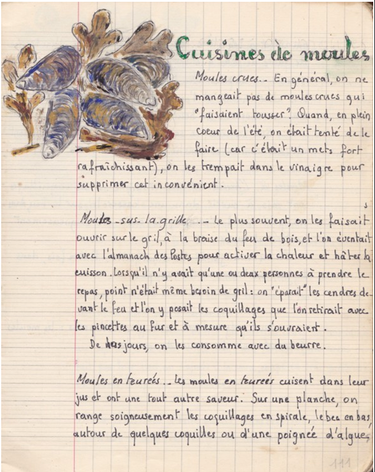 Cuisines de moules
Moules crues.. En général, on ne
mangeait pas de moules crues qui
"faisaient tousser". Quand, en plein
coeur de l'été, on était tenté de le
faire (car c'était un mets fort
rafraîchissant), on les trempait dans le vinaigre pour
supprimer cet inconvénient.
Moules sur la grille... Le plus souvent, on les faisait
ouvrir sur le gril, à la braise du feu de bois, et l'on éventait
avec l'almanach des Postes pour activer la chaleur et hâter la
cuisson. Lorsqu'il n'y avait qu'une ou deux personnes à prendre le
repas, point n'était même besoin de gril: on "éparait" les cendres de-
vant le feu et l'on y posait les coquillages que l'on retirait avec
les pincettes au fur et à mesure qu'ils s'ouvraient.
De nos jours, on les consomme avec du beurre.
Moules en teurées.. Les moules en teurées cuisent dans leur
jus et ont une tout autre saveur. Sur une planche, on
range soigneusement les coquillages en spirale, le bec en bas,
autour de quelques coquilles ou d'une poignée d'algues,